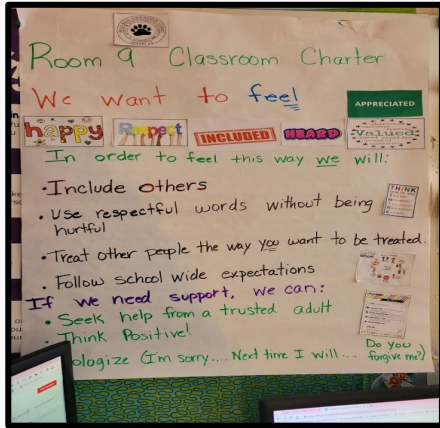 Room 9 Classroom Charter
We want to feel
APPRECIATED
happy Respect INCLUDED HEARD Valued
In order to feel this way we will:
THINK
• Include others
• Use respectful words without being
hurtful
• Treat other people the way you want to be treated.
• Follow school wide expectations
If we need support, we can:
• Seek help from a trusted adult
• Think Positive!
ologize (I'm sorry.... Next time I will ... Do you
forgive me?)